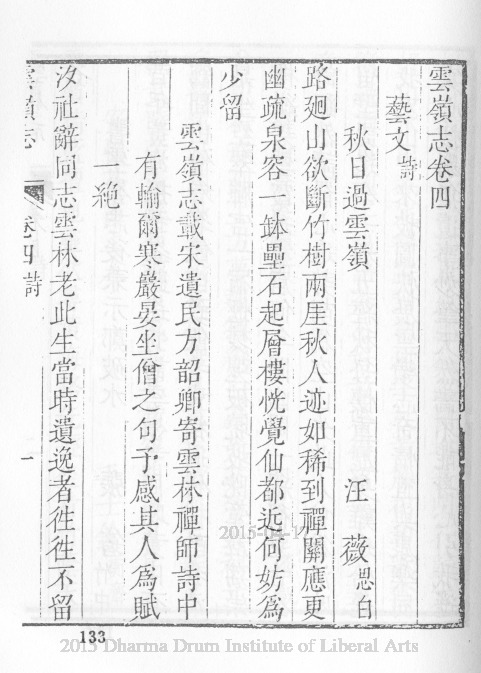 雲嶺志卷四
藝文詩
秋日過雲嶺 汪薇思白
路廻山欲斷竹樹兩厓秋人迹如稀到禪關應更
幽疏泉容一缽壘石起層樓恍覺仙都近何妨為
少留
雲嶺志載宋遺民方韶卿寄雲林禪師詩中
有輸爾寒巖晏坐僧之句予感其人為賦
一絶
汐社辭同志雲林老此生當時遺逸者徃徃不留
雲嶺志 卷四詩 一
133
2015-04-17
2015 Dharma Drum Institute of Liberal Arts